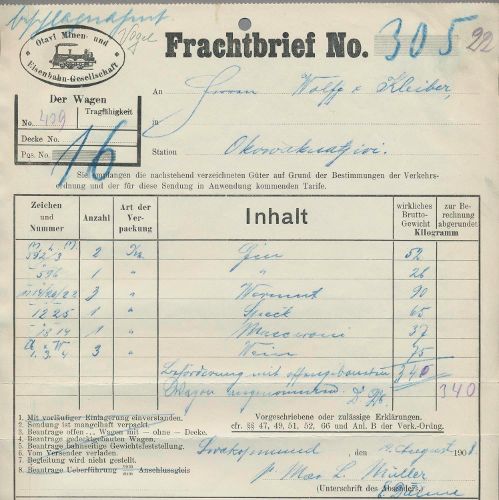 Otavi Minen- und
Eisenbahn-Gesellschaft
Frachtbrief No. 305
22
An Herren Wolff & Kleiber,
Der Wagen
No. 409 Tragfähigkeit
Decke No.
Pos. No.
16
Station Okowakuatjivi.
Sie empfangen die nachstehend verzeichneten Güter auf Grund der Bestimmungen der Verkehrs-
ordnung und der für diese Sendung in Anwendung kommenden Tarife.
Zeichen und Nummer Anzahl Art der Ver- packung Inhalt wirkliches Brutto- Gewicht zur Be- rechnung abgerundet
Kilogramm
592/3 2 Kis Gin 52
596 1 " " 26
3 Wermut 90
1225 1 " Speck 65
1814 1 " Maccaroni 37
1. 3. 4 3 " Wein 75
Beförderung mit offengebautem 340
Wagon angenommen 340
1. Mit vorläufiger Einlagerung einverstanden.
2. Sendung ist mangelhaft verpackt.
3. Beantrage offen... Wagen mit — ohne — Decke.
4. Beantrage gedecktgebauten Wagen.
5. Beantrage bahnseitige Gewichtsfeststellung.
6. Vom Versender verladen.
7. Begleitung wird nicht gestellt.
8. Beantrage Ueberführung Anschlussgleis
Vorgeschriebene oder zulässige Erklärungen.
cfr. §§ 47, 49, 51, 52, 66 und Anl. B der Verk.-Ordng.
Swakopmund August 190
p. Max L. Müller
(Unterschrift des Absenders)